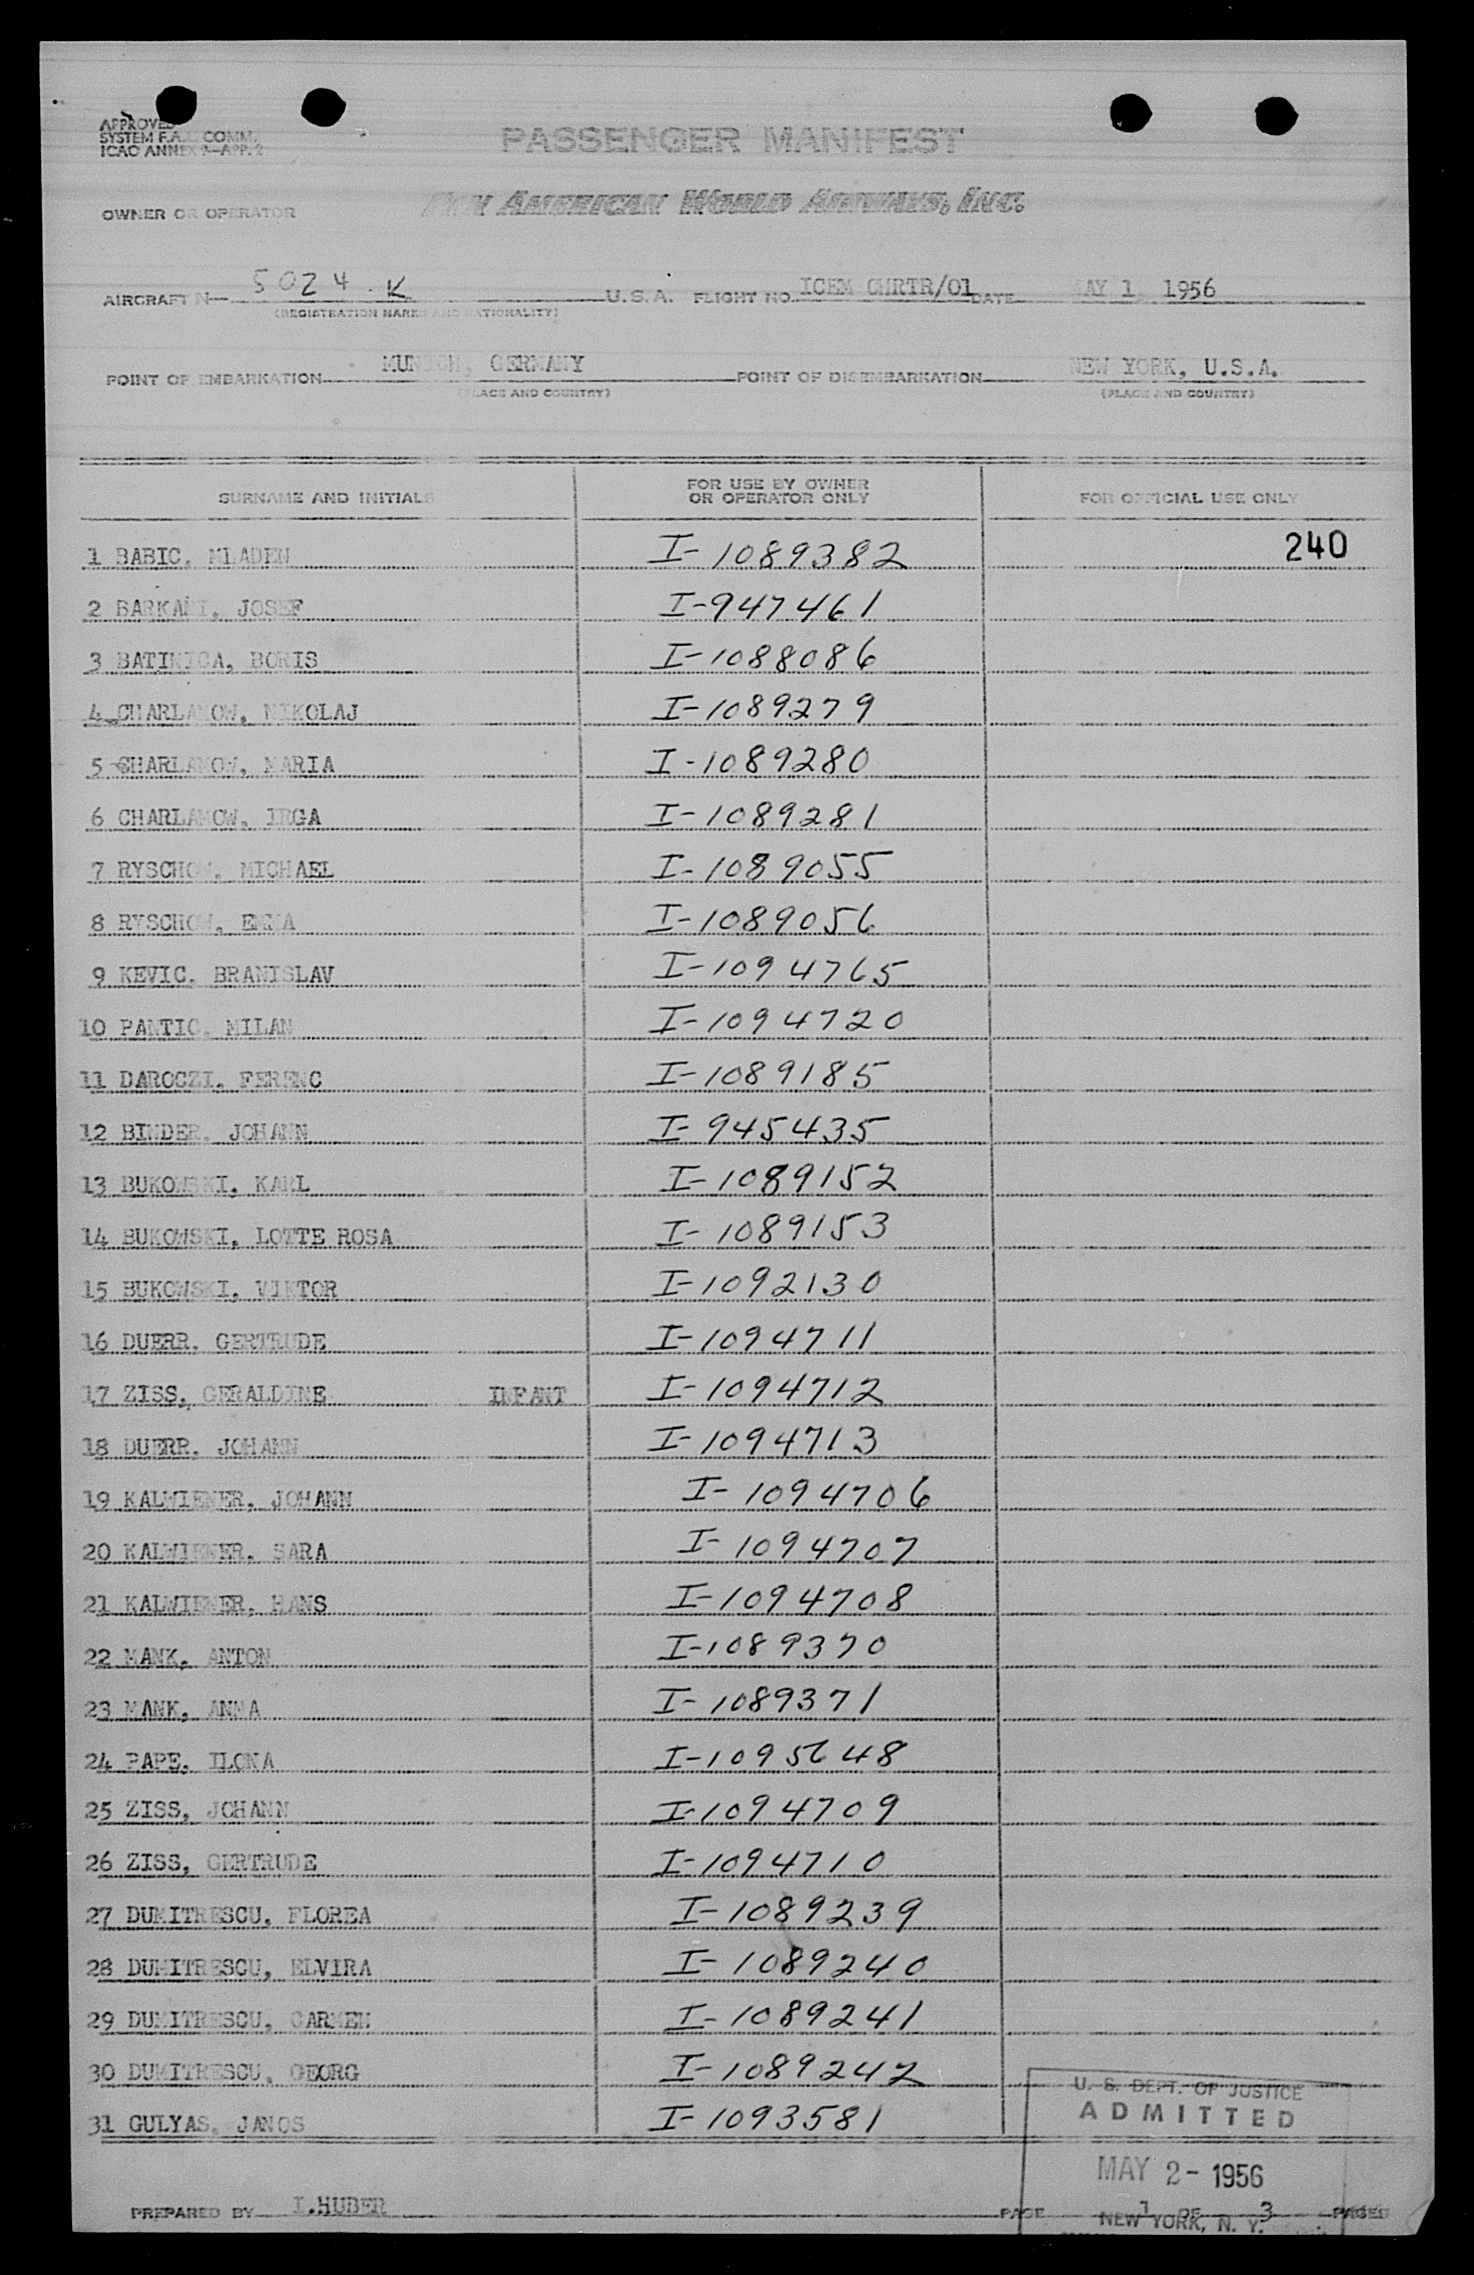 APPROVED
SYSTEM F.A.L. COMM.
ICAO ANNEX 9—APP. 2
PASSENGER MANIFEST
OWNER OR OPERATOR
PAN AMERICAN WORLD AIRWAYS, INC.
AIRCRAFT N— 5024 K U.S.A. FLIGHT NO. ICEM CHRTR/01 DATE MAY 1 1956
(REGISTRATION MARKS AND NATIONALITY)
POINT OF EMBARKATION MUNICH, GERMANY POINT OF DISEMBARKATION NEW YORK, U.S.A.
(PLACE AND COUNTRY) (PLACE AND COUNTRY)
SURNAME AND INITIALS FOR USE BY OWNER OR OPERATOR ONLY FOR OFFICIAL USE ONLY
1 BABIC, MLADEN I-1089382 240
2 BARKANI, JOSEF I-947461
3 BATINICA, BORIS I-1088086
4 CHARLAMOW, NIKOLAJ I-1089279
5 CHARLAMOW, MARIA I-1089280
6 CHARLAMOW, IRGA I-1089281
7 RYSCHOW, MICHAEL I-1089055
8 RYSCHOW, EMMA I-1089056
9 KEVIC, BRANISLAV I-1094765
10 PANTIC, MILAN I-1094720
11 DAROCZI, FERENC I-1089185
12 BINDER, JOHANN I-945435
13 BUKOWSKI, KARL I-1089152
14 BUKOWSKI, LOTTE ROSA I-1089153
15 BUKOWSKI, VIKTOR I-1092130
16 DUERR, GERTRUDE I-1094711
17 ZISS, GERALDINE INFANT I-1094712
18 DUERR, JOHANN I-1094713
19 KALWIENER, JOHANN I-1094706
20 KALWIENER, SARA I-1094707
21 KALWIENER, HANS I-1094708
22 MANK, ANTON I-1089370
23 MANK, ANNA I-1089371
24 PAPE, ILONA I-1095648
25 ZISS, JOHANN I-1094709
26 ZISS, GERTRUDE I-1094710
27 DUMITRESCU, FLOREA I-1089239
28 DUMITRESCU, ELVIRA I-1089240
29 DUMITRESCU, CARMEN I-1089241
30 DUMITRESCU, GEORG I-1089242
31 GULYAS, JANOS I-1093581
U. S. DEPT. OF JUSTICE
ADMITTED
MAY 2- 1956
PREPARED BY I.HUBER PAGE 1 OF 3 PAGES
NEW YORK, N. Y.